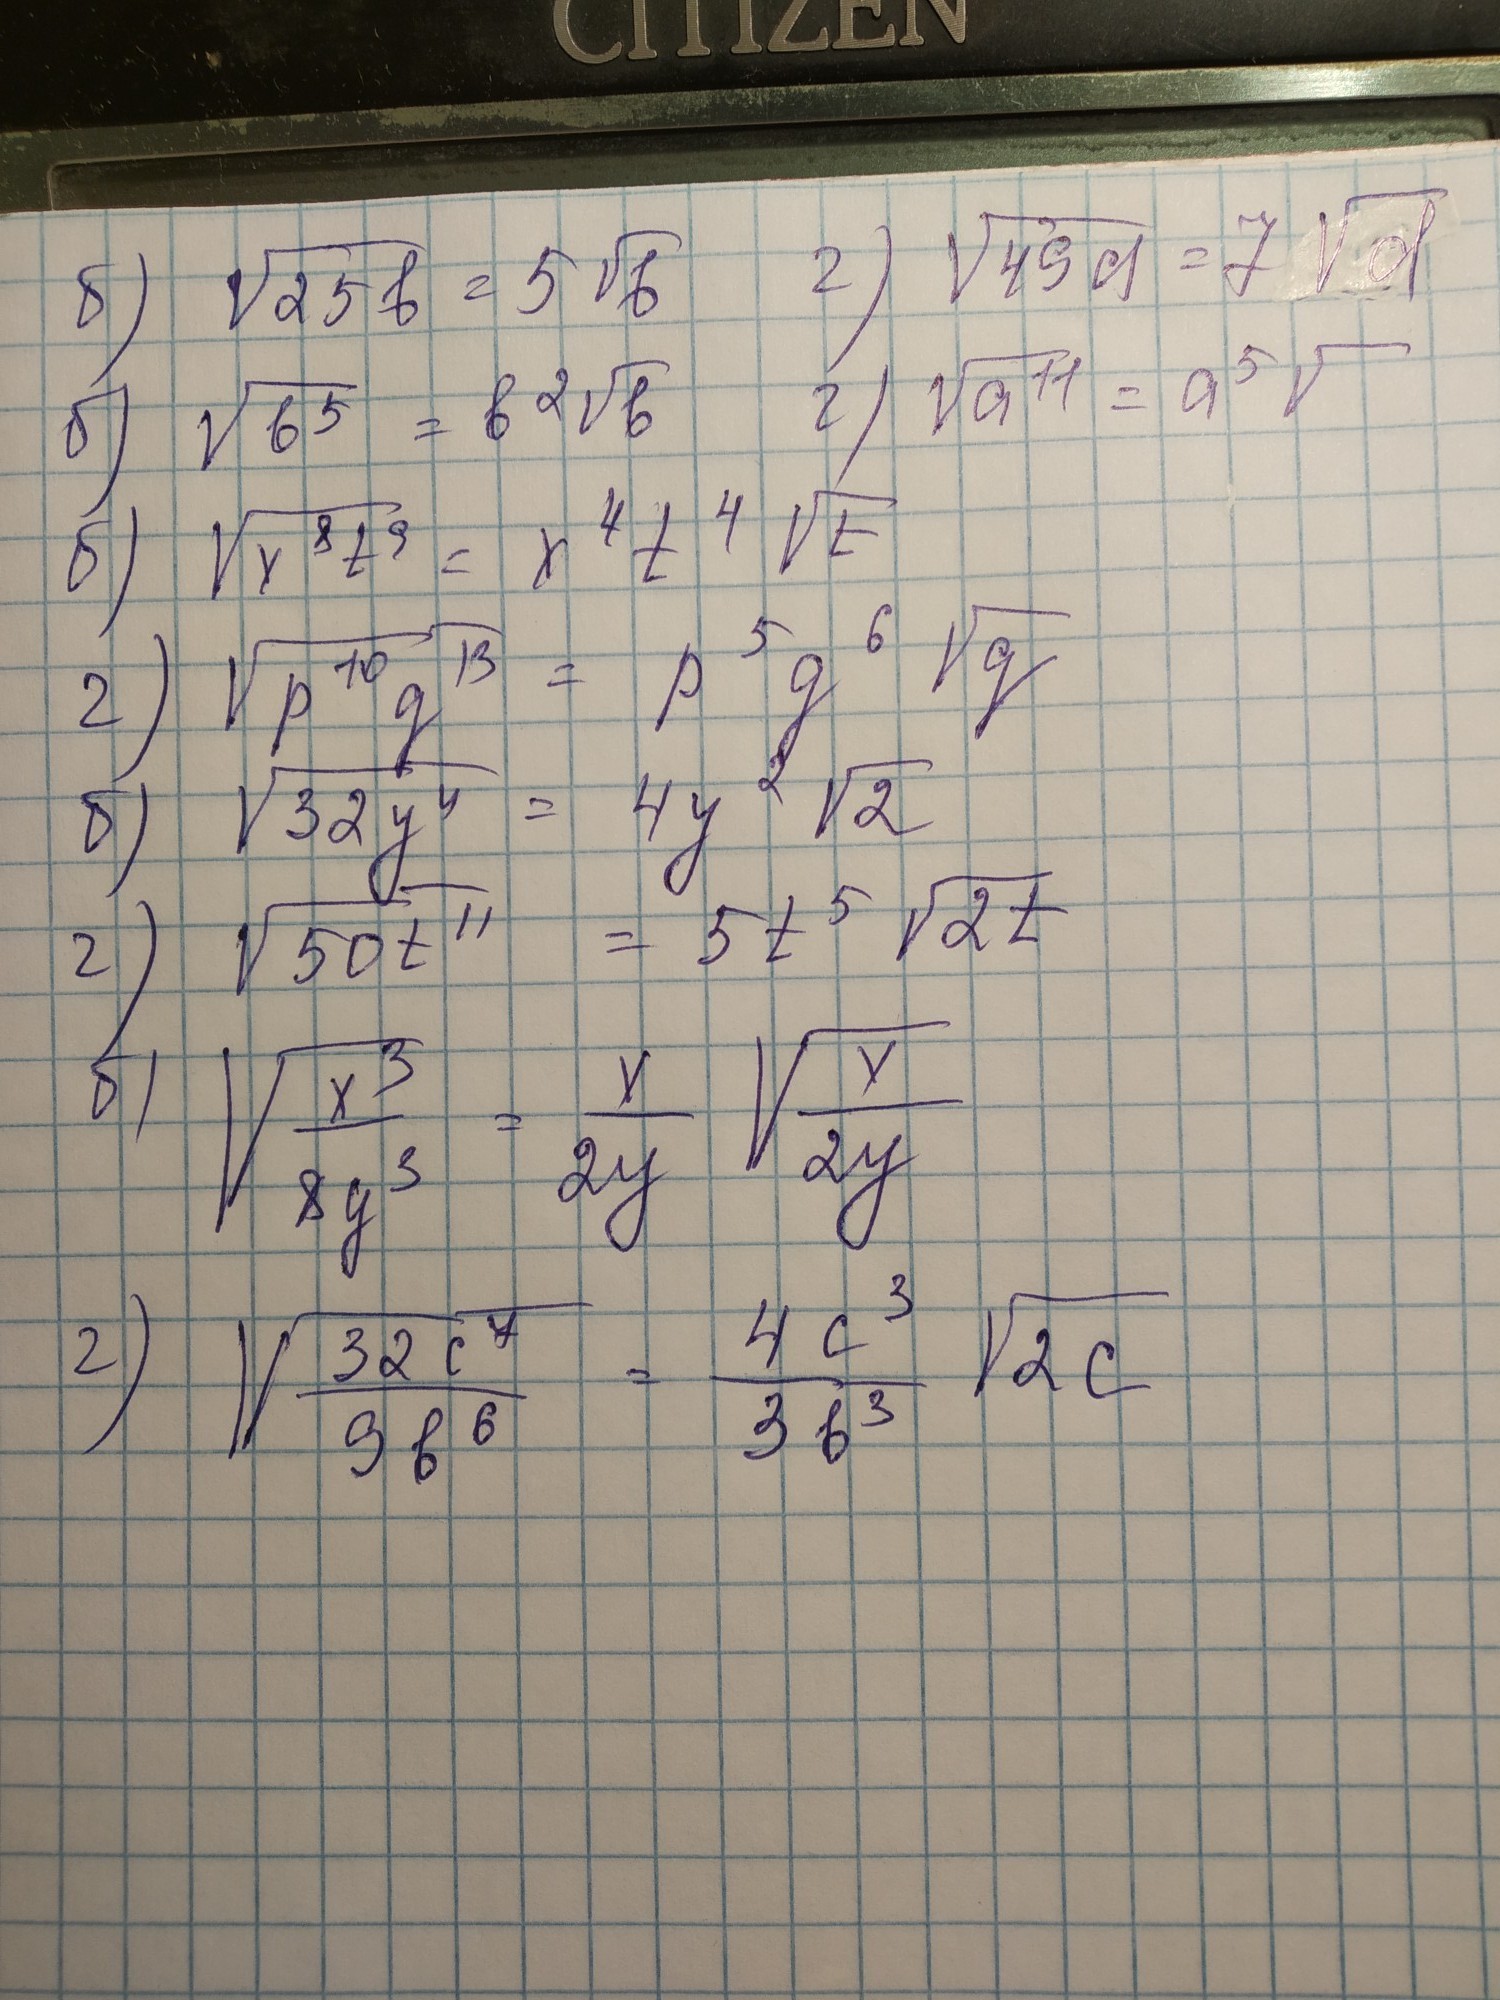 CITIZEN
б) √25b = 5√b г) √49d = 7√d
б) √b⁵ = b²√b г) √a¹¹ = a⁵√
б) √x⁸t⁹ = x⁴t⁴√t
г) √p¹⁰q¹³ = p⁵q⁶√q
б) √32y⁴ = 4y²√2
г) √50t¹¹ = 5t⁵√2t
б) √(x³/8y³) = x/2y √(x/2y)
г) √(32c⁷/9b⁶) = 4c³/3b³ √2c